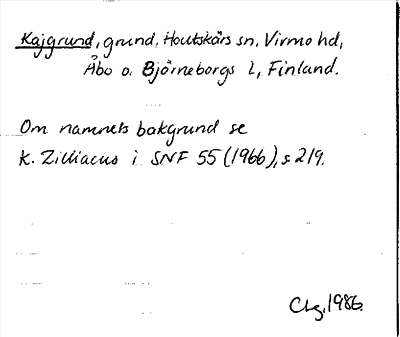 Kajgrund, grund, Houtskärs sn, Virmo hd,
Åbo o. Björneborgs l, Finland.
Om namnets bakgrund se
K. Zilliacus i SNF 55 (1966), s 219.
Clg, 1986.